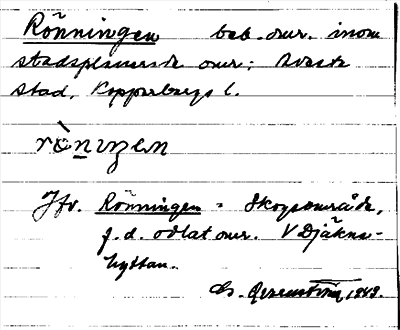 Rönningen beb. omr. inom
stadsplanerade omr; Avesta
stad, Kopparbergs l.
Jfr. Rönningen = Skogsområde,
f.d. odlat omr. V Djäkne-
hyttan.
1943.